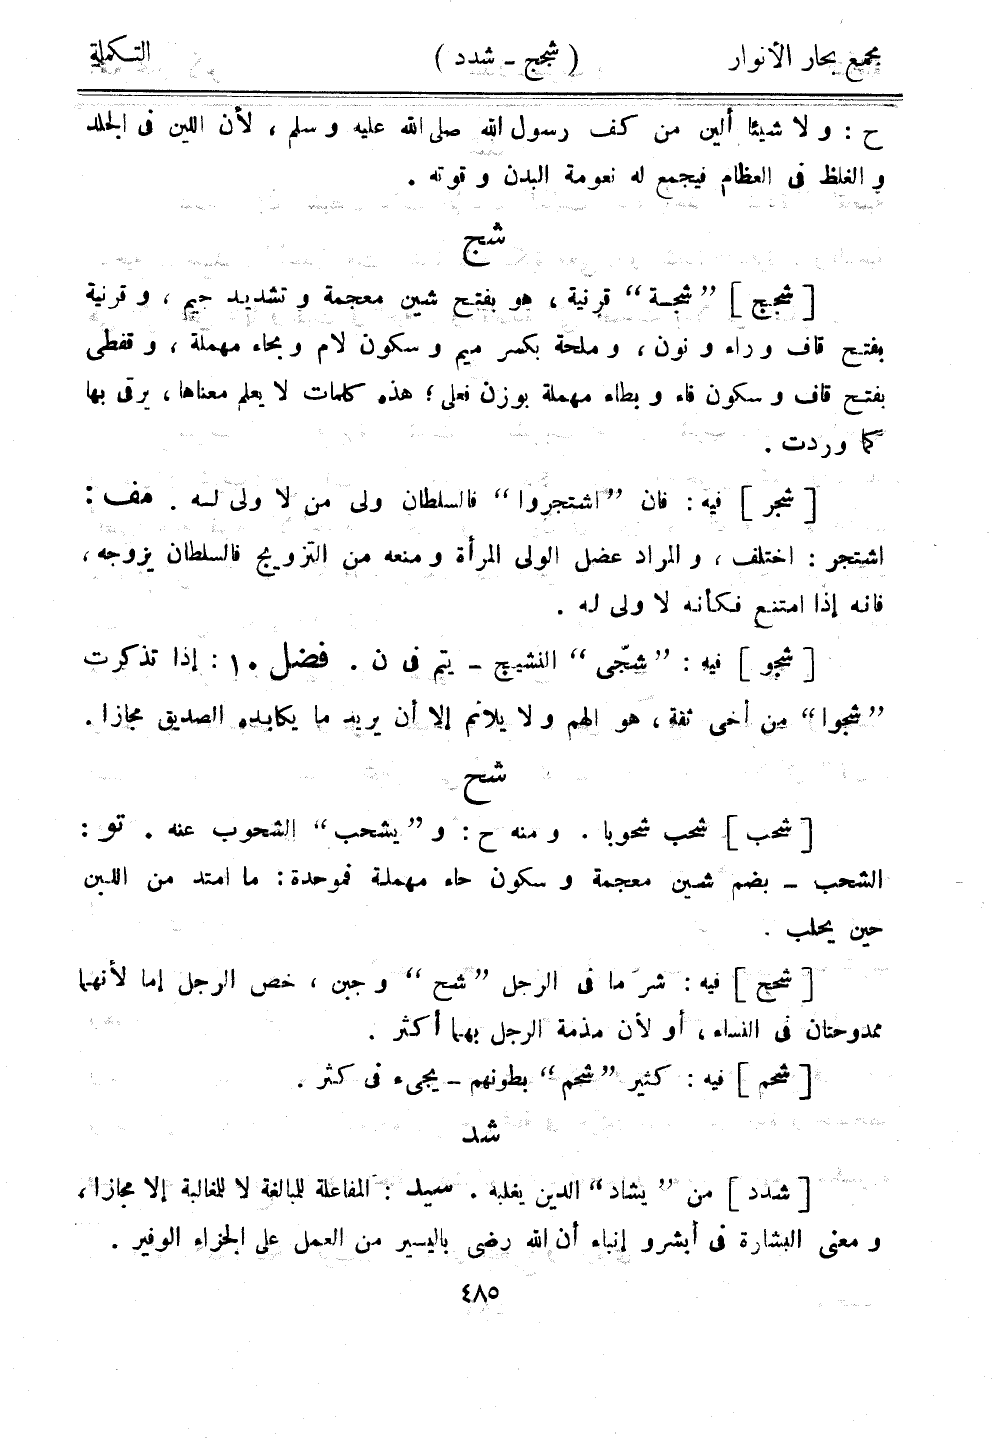 مجمع بحار الأنوار ( شجج - شدد ) التكملة
ح : و لا شيئا ألين من كف رسول الله صلى الله عليه و سلم ، لأن اللين فى الجلد
و الغلظ فى العظام فيجمع له نعومة البدن و قوته .
شج
[ شجج ] ”شجة“ قرنية ، هو بفتح شين معجمة و تشديد جيم ، و قرنية
بفتح قاف و راء و نون ، و ملحة بكسر ميم و سكون لام و بحاء مهملة ، و قفطى
بفتح قاف و سكون فاء و بطاء مهملة بوزن فعلى ؛ هذه كلمات لا يعلم معناها ، يرقى بها
كما وردت .
[ شجر ] فيه : فان ”اشتجروا“ فالسلطان ولى من لا ولى له . مف :
اشتجر : اختلف ، و المراد عضل الولى المرأة و منعه من التزويج فالسلطان يزوجه ،
فانه إذا امتنع فكأنه لا ولى له .
[ شجو ] فيه : ”شجّى“ النشيج – يتم فى ن . فضل ١٠ : إذا تذكرت
”شجوا“ من أخى ثقة ، هو الهم و لا يلائم إلا أن يريد ما يكابده الصديق مجازا .
شح
[ شحب ] شحب شحوبا . و منه ح : و ”يشحب“ الشحوب عنه . تو :
الشحب – بضم شين معجمة و سكون حاء مهملة فموحدة : ما امتد من اللبن
حين يحلب .
[ شحح ] فيه : شر ما فى الرجل ”شح“ و جبن ، خص الرجل إما لأنهما
ممدوحتان فى النساء ، أو لأن مذمة الرجل بهما أكثر .
[ شحم ] فيه : كثير ”شحم“ بطونهم – يجىء فى كثر .
شد
[ شدد ] من ”يشاد“ الدين يغلبه . سيد : المفاعلة للمبالغة لا للمغالبة إلا مجازا ،
و معنى البشارة فى أبشرو إنباء أن الله رضى باليسير من العمل على الجزاء الوفير .
٤٨٥